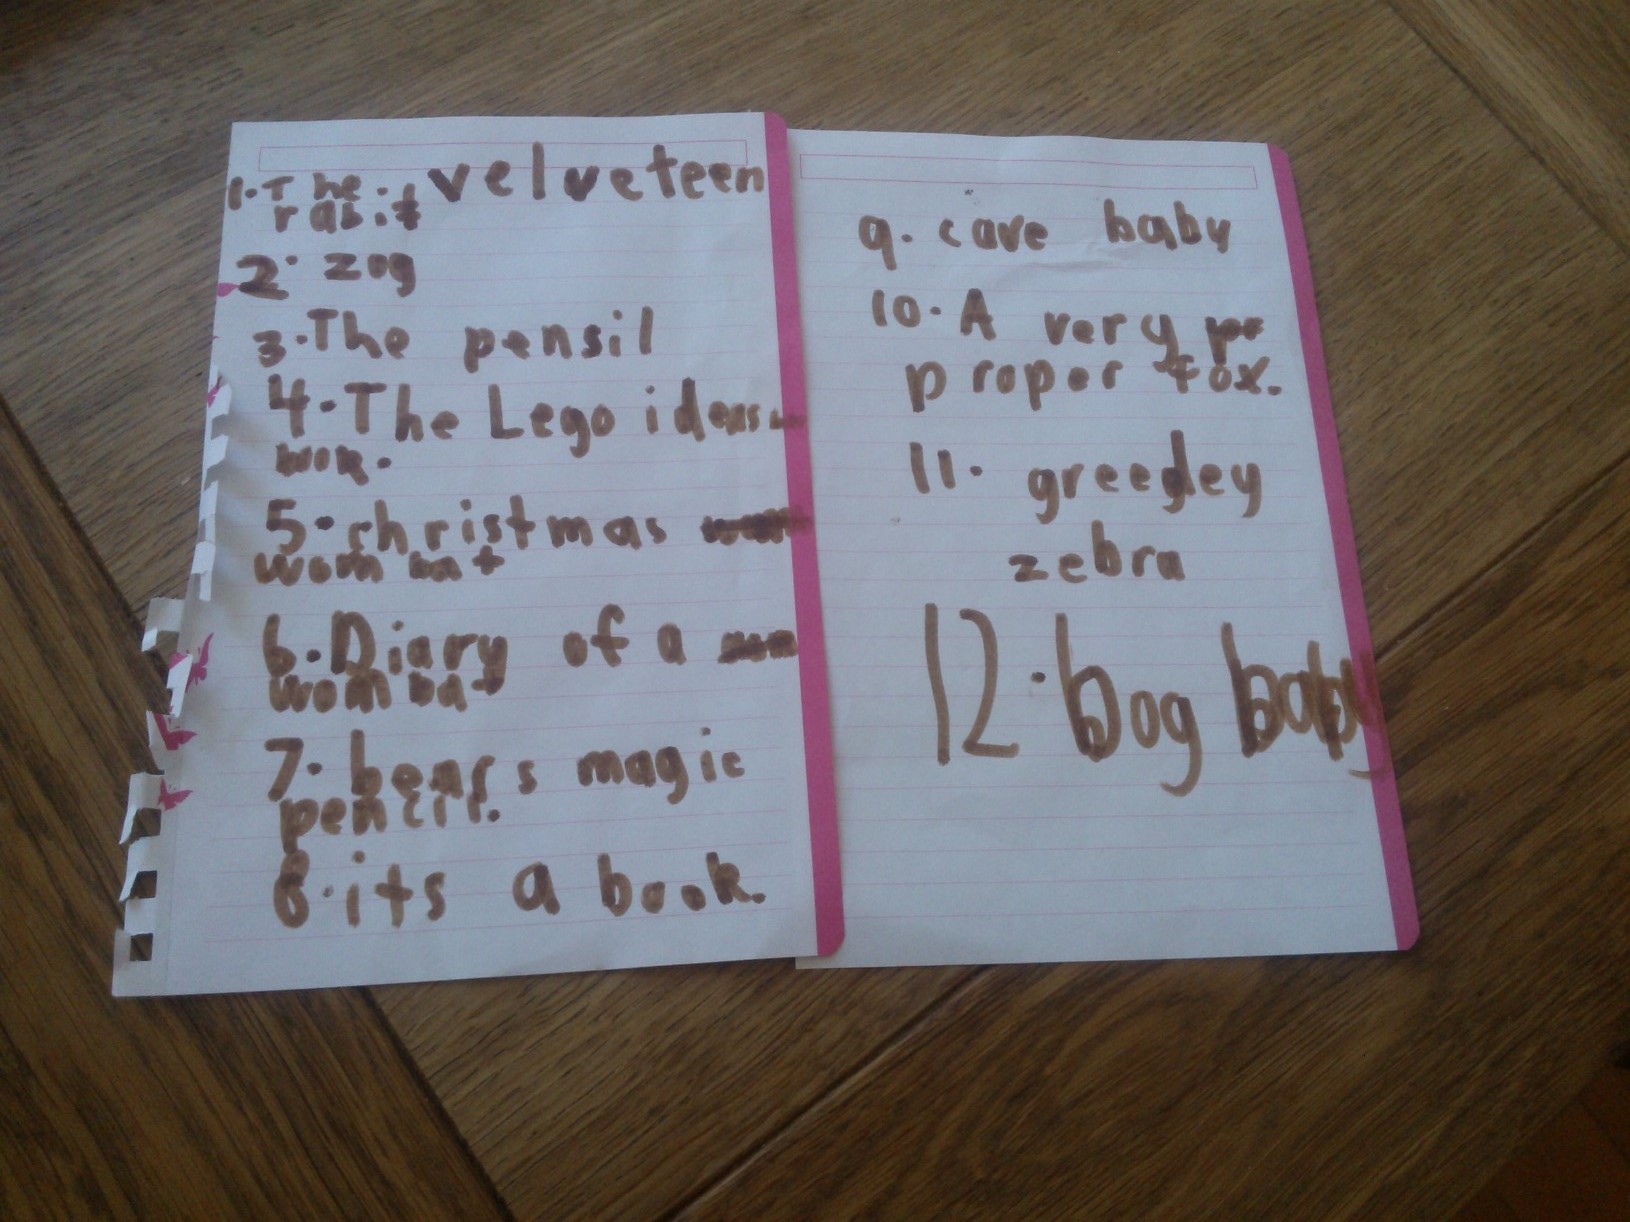 1. The velveteen
rabit
2. zog
3. The pensil
4. The Lego ideas
5. christmas
wombat
6. Diary of a
wombat
7. bears magic
pencil.
8. its a book.
9. cave baby
10. A very
proper fox.
11. greedey
zebra
12. bog baby